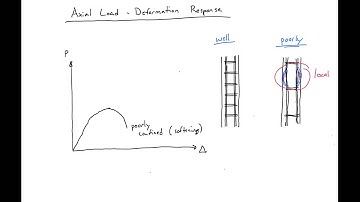 Axial Load - Deformation Response
well
poorly
P
local
poorly
confined (softening)
Δ